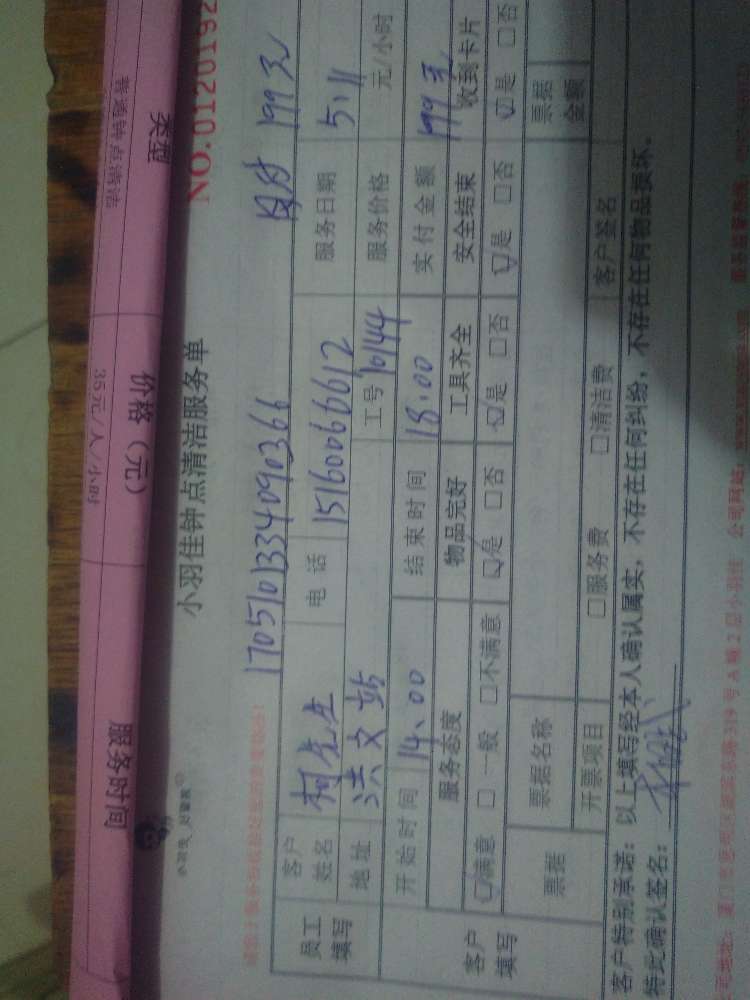 服务时间 价格（元） 类型
35元/人/小时 普通钟点清洁
小羽佳钟点清洁服务单 NO.0120192
1705101334090366 199元
员工填写 客户姓名 柯先生 电话 15160066612 服务日期 5.11
地址 洪文站 工号 10144 服务价格 元/小时
客户填写 开始时间 14:00 结束时间 18:00 实付金额 199元
服务态度 物品完好 工具齐全 安全结束 收到卡片
☑满意 □一般 □不满意 ☑是 □否 ☑是 □否 ☑是 □否 ☑是 □否
票据 票据名称 票据金额
开票项目 □服务费 □清洁费 客户签名
客户特别承诺：以上填写经本人确认属实，不存在任何纠纷，不存在任何物品损坏。
特此确认签名：
公司网站：